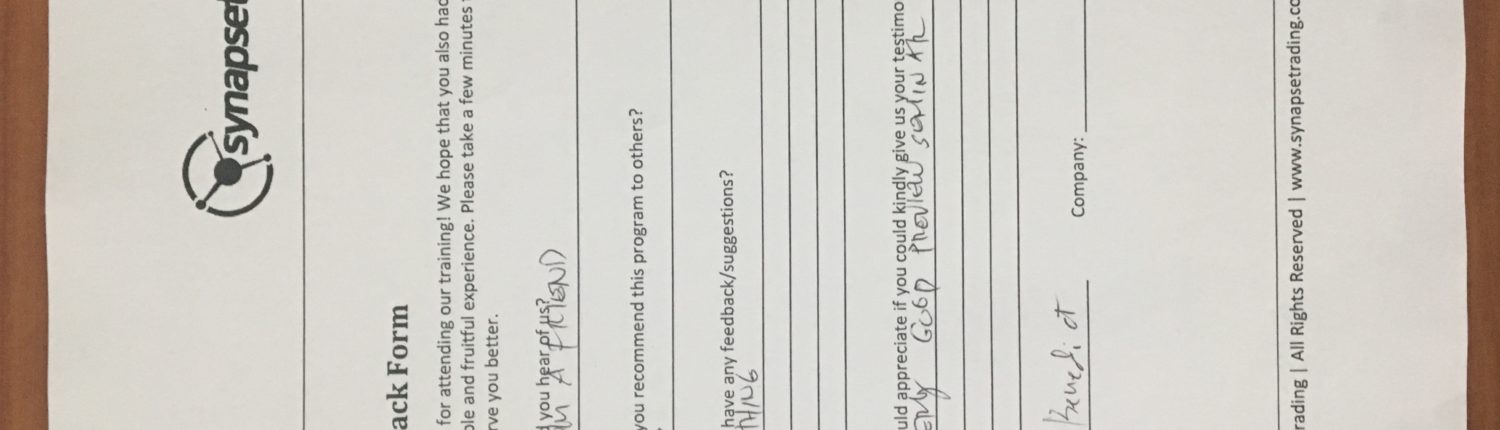 synapset
ack Form
for attending our training! We hope that you also had
ble and fruitful experience. Please take a few minutes
rve you better.
d you hear of us?
A FRIEND
you recommend this program to others?
have any feedback/suggestions?
THING
uld appreciate if you could kindly give us your testimo
GOOD PREVIEW
Benedict Company:
rading | All Rights Reserved | www.synapsetrading.co